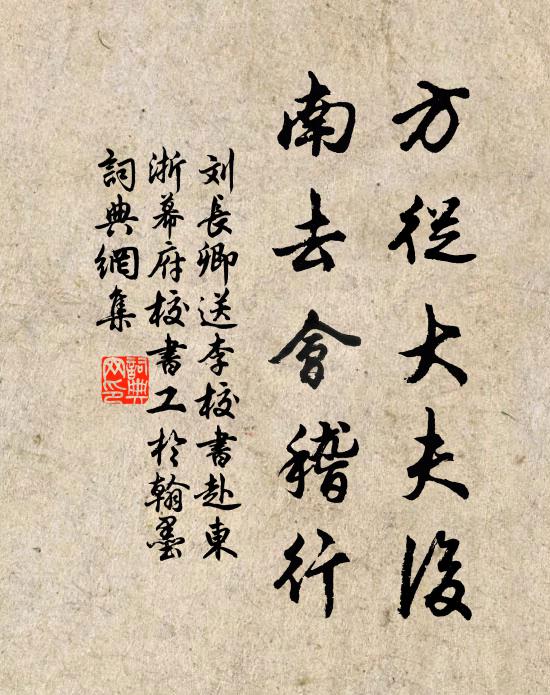 方從大夫後
南去會稽行
刘長卿送李校書赴東
浙幕府校書工於翰墨
詞典網集
詞典
网印